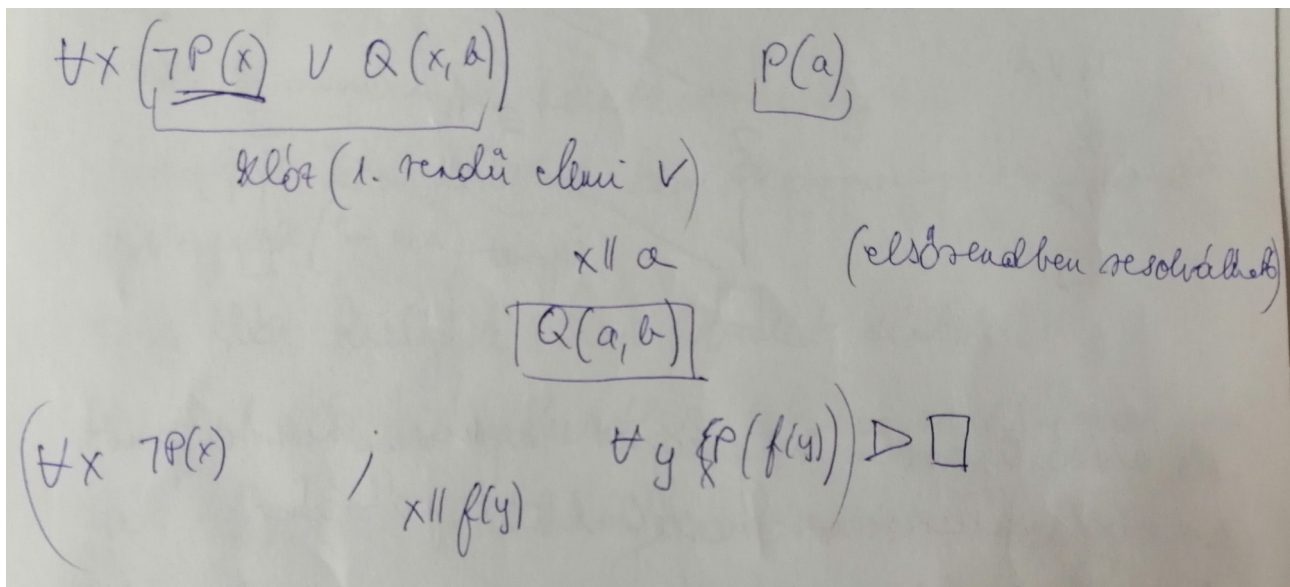 ∀x (¬P(x) ∨ Q(x, b)) P(a)
klóz (1. rendű elemi ∨)
x || a (elsőrendben rezolválható)
Q(a, b)
(∀x ¬P(x) ; ∀y P(f(y))) ▷ □
x || f(y)